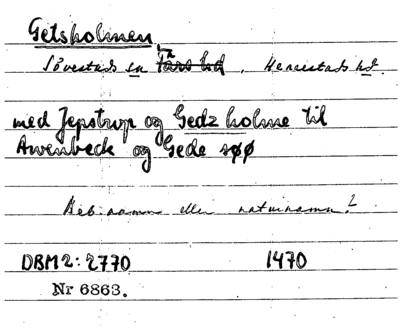 Getsholmen,
Sövestads sn Färs hd, Herrestads hd.
med Jepstrup og Gedz holme til
Awenbeck og Gede søø
Beb.namn eller naturnamn?
DBM 2: 2770 1470
Nr 6863.